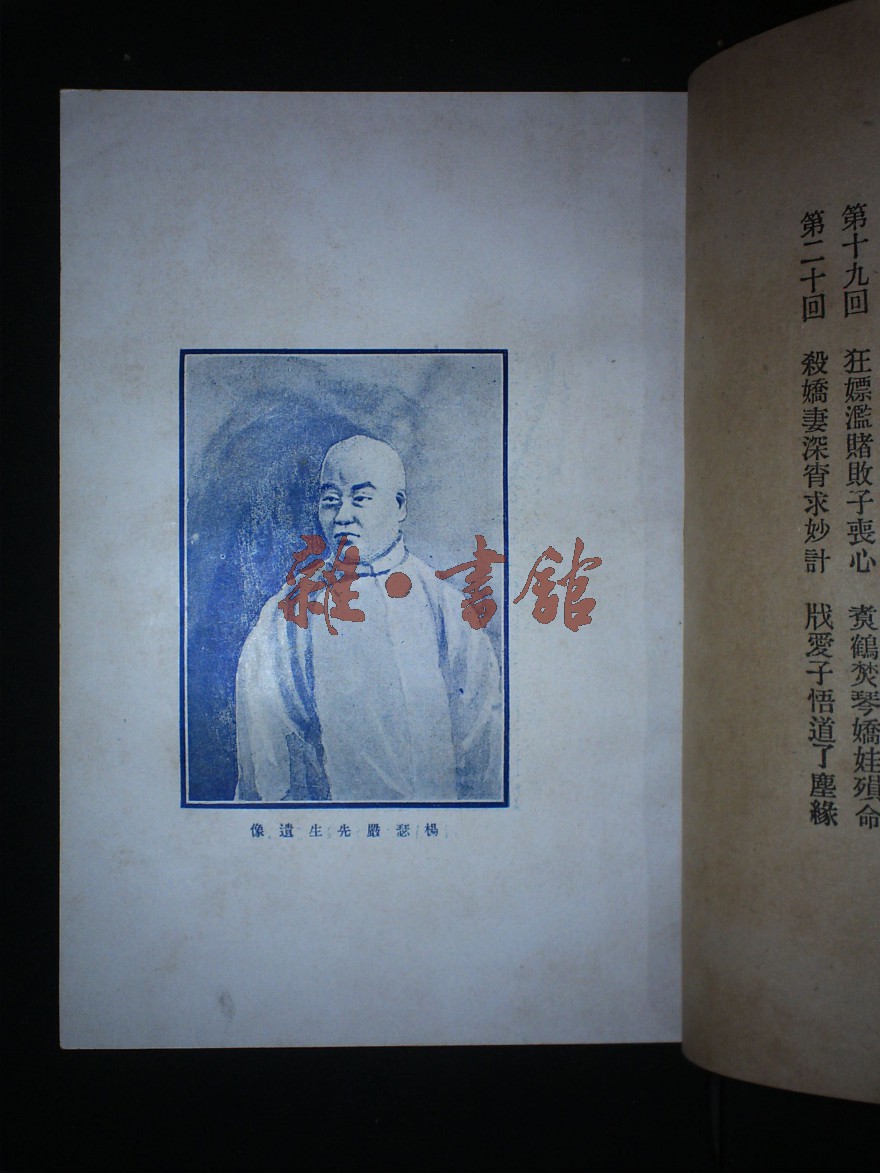 第十九回 狂嫖濫賭敗子喪心 煑鶴焚琴嬌娃殞命
第二十回 殺嬌妻深宵求妙計 戕愛子悟道了塵緣
雜·書館
楊瑟嚴先生遺像